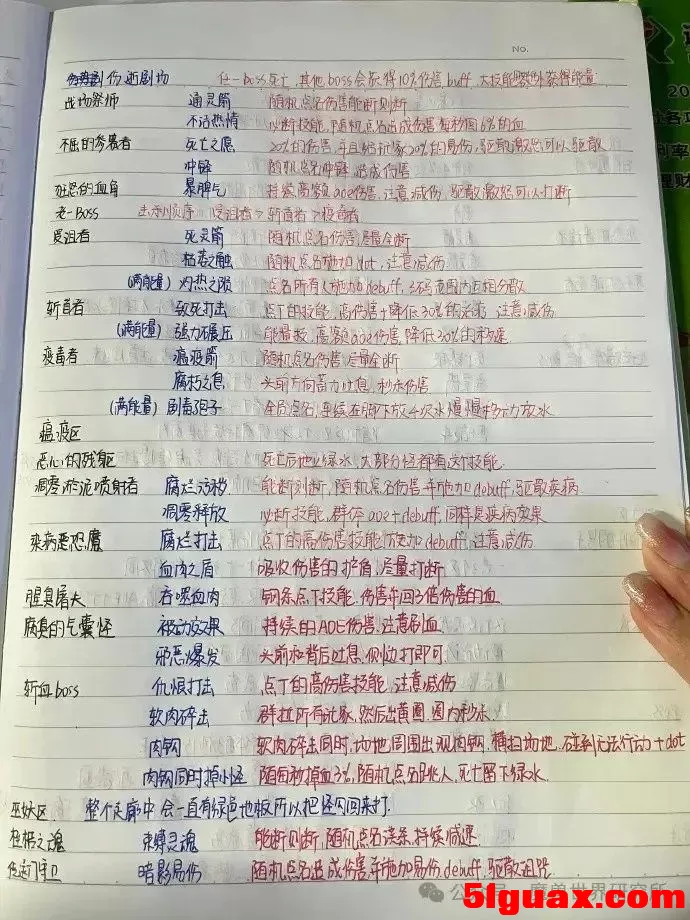 No.
伤逝剧场 任一Boss死亡,其他boss会获得10%伤害buff,大技能额外获得能量
战场祭师 通灵箭 随机点名伤害能断则断
不洁热情 必断技能,随机点名造成伤害每秒回6%的血
不屈的参赛者 死亡之愿 20%的伤害,并且给玩家20%的易伤,驱散激怒可以驱散
冲锋 随机点名冲锋,造成伤害
狂怒的血角 暴脾气 持续高额aoe伤害,注意减伤,驱散激怒可以打断
老一Boss 击杀顺序 受诅者>斩首者>疫毒者
受诅者 死灵箭 随机点名伤害,尽量全断
枯萎之触 随机点名施加dot,注意减伤
(满能量) 灼热之陨 点名所有人施加debuff,5码范围内互相分散
斩首者 致死打击 点T的技能,高伤害+降低30%的治疗 注意减伤
(满能量) 强力碾压 能量技,高额aoe伤害,降低30%的移速
疫毒者 瘟疫箭 随机点名伤害,尽量全断
腐朽之息 头前方向蓄力吐息,秒杀伤害
(满能量) 剧毒孢子 全局点名,连续在脚下放4次水爆爆移动放水
瘟疫区
恶心的残躯 死亡后地上绿水,大部分怪都有这技能
凋零淤泥喷射者 腐烂污秽 能断则断,随机点名伤害并施加debuff,驱散疾病
凋零释放 必断技能,群体aoe+debuff,同样是疾病效果
染病恐魔 腐烂打击 点T的高伤害技能,施加debuff,注意减伤
血肉之盾 吸收伤害的护盾,尽量打断
腥臭屠夫 吞噬血肉 钢条点T技能,伤害并回3倍伤害的血
腐臭的气囊怪 被动效果 持续的AOE伤害,注意刷血
邪恶爆发 头前和背后吐息,侧边打即可.
斩血boss 仇恨打击 点T的高伤害技能,注意减伤
软肉碎击 群拉所有玩家,然后出黄圈,圈内秒杀
肉钩 软肉碎击同时,场地周围出现肉钩,横扫场地,碰到无法行动+dot
肉钩同时掉小怪 随每秒掉血3%,随机点名,死亡留下绿水.
巫妖区 整个走廊中会一直有绿色地板所以把怪勾回来打.
桎梏之魂 束缚灵魂 能断则断,随机点名,持续减速
传送门守卫 暗影易伤 随机点名造成伤害并施加易伤debuff,驱散诅咒
公众号 魔兽世界研究所
51guax.com